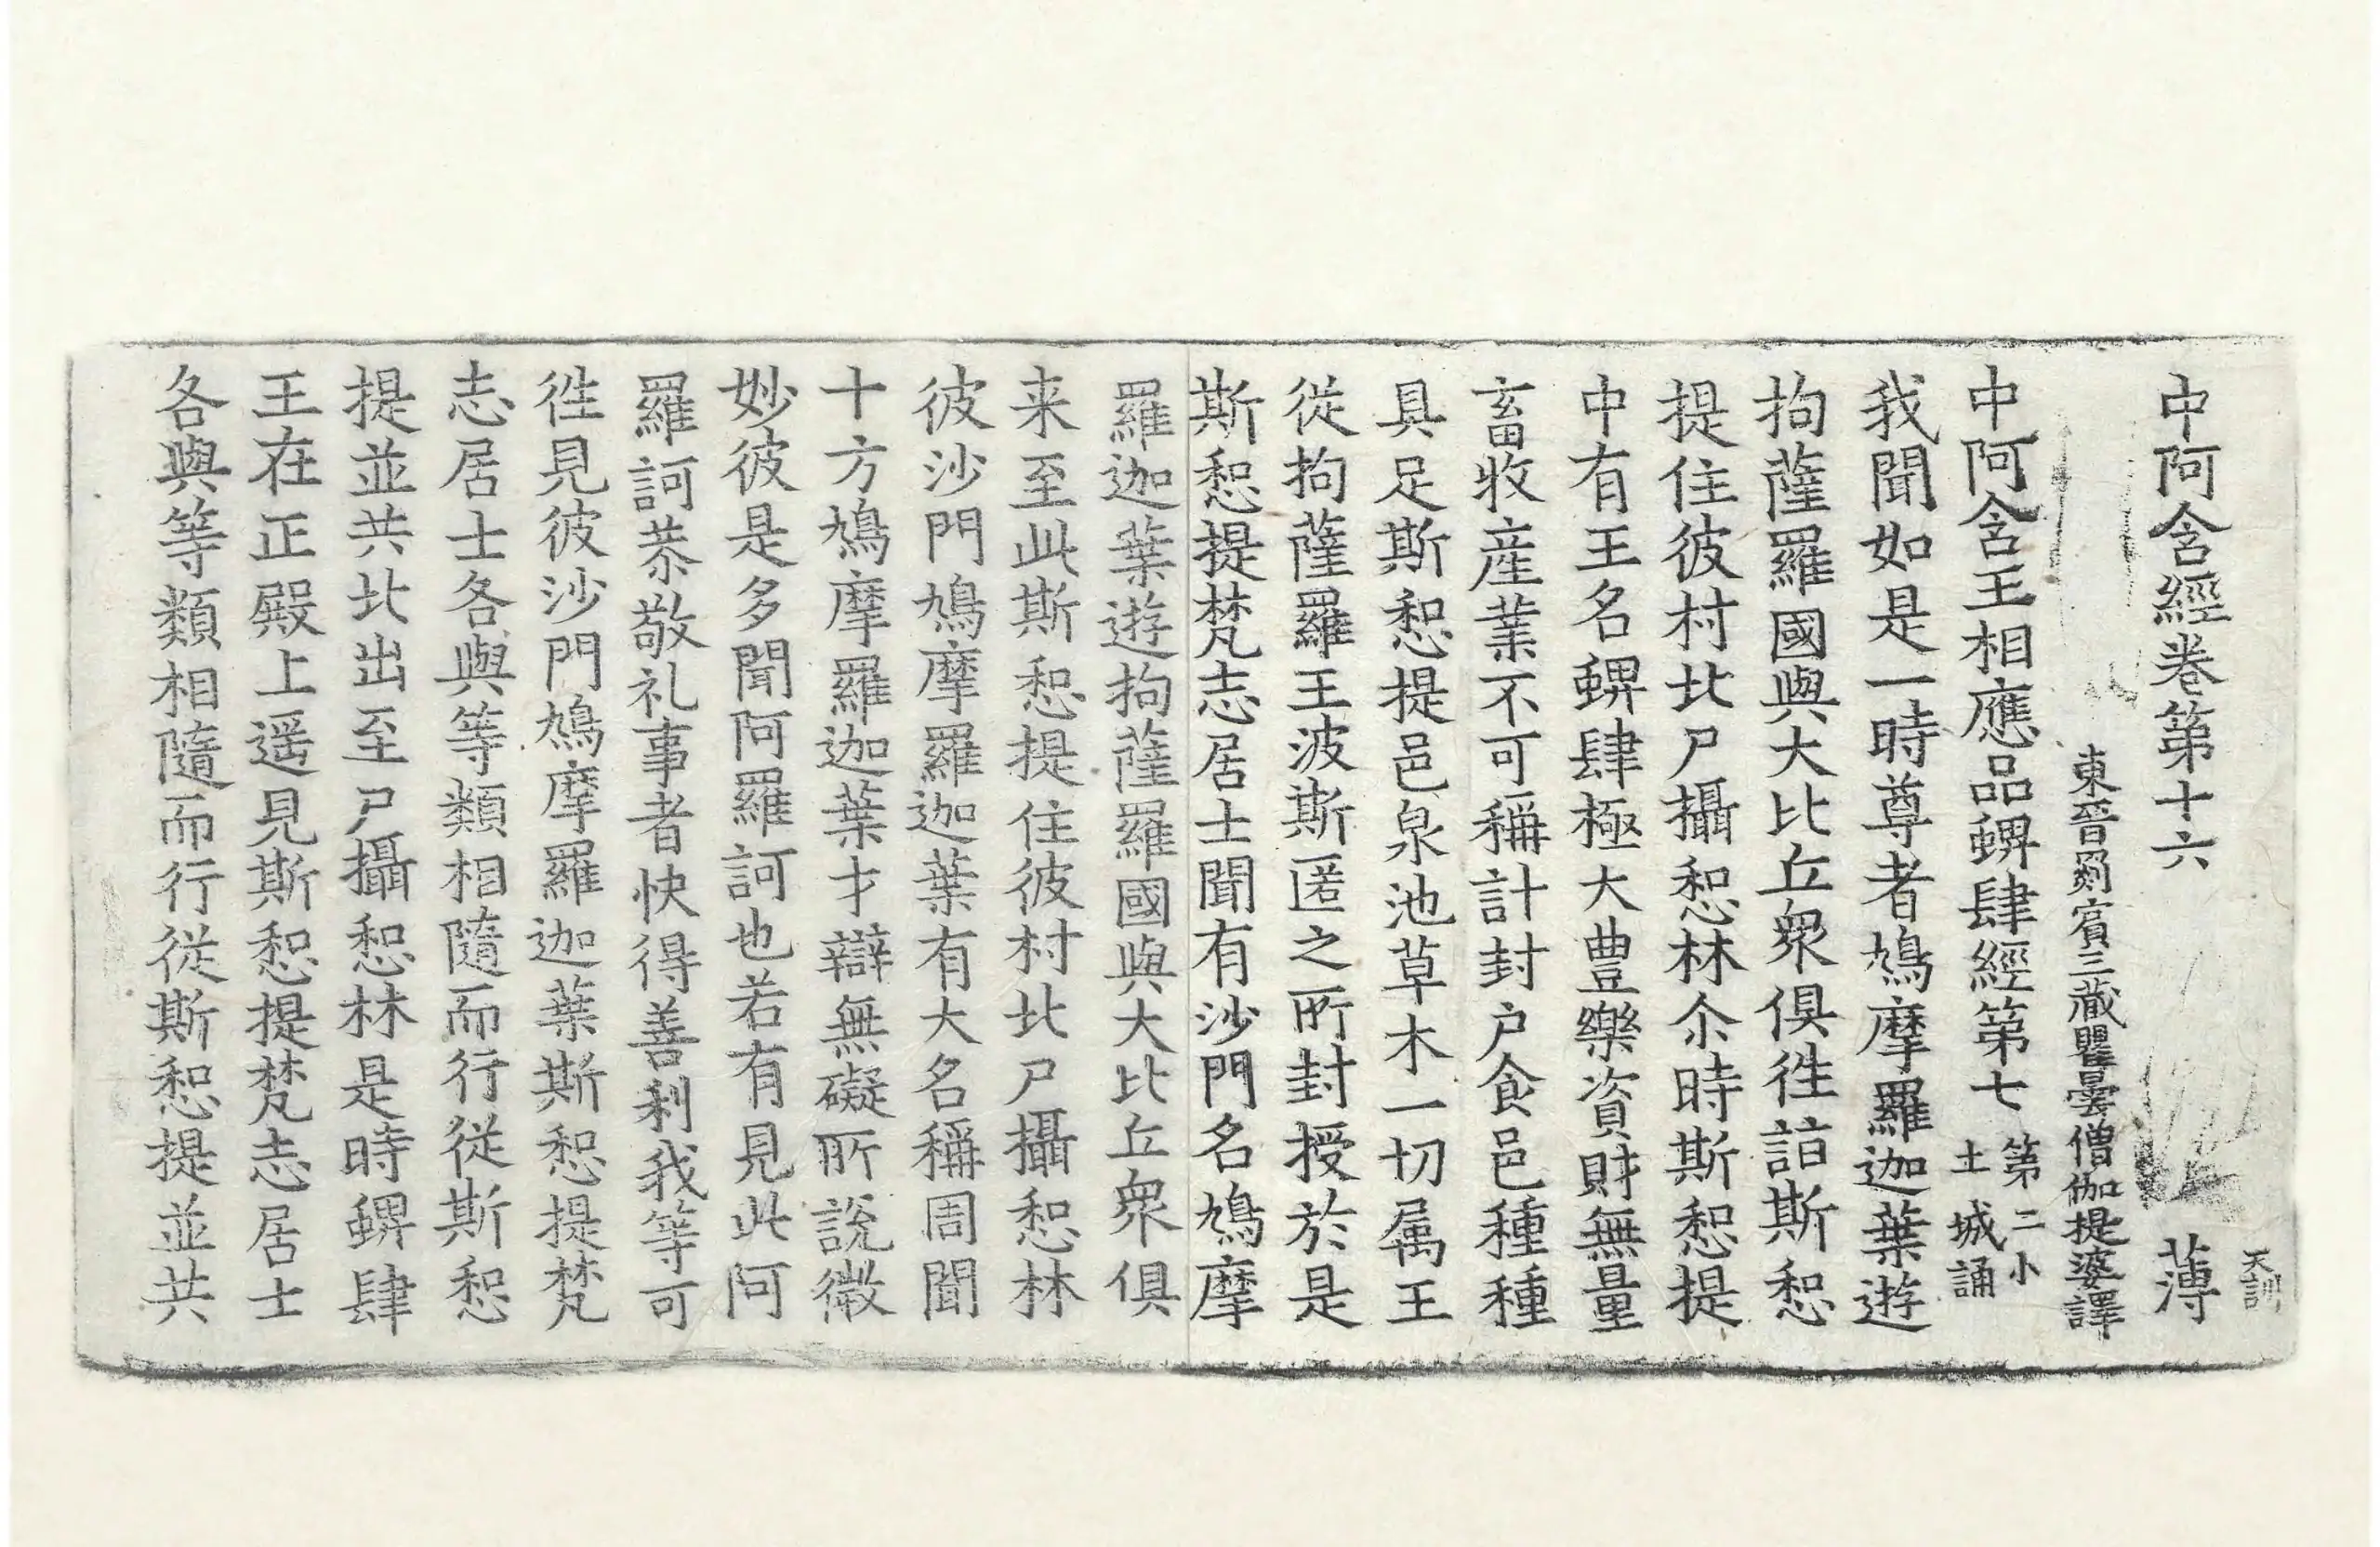 中阿含經卷第十六 薄
天訓
東晉罽賓三藏瞿曇僧伽提婆譯
中阿含王相應品蜱肆經第七 第二小土城誦
我聞如是一時尊者鳩摩羅迦葉遊
拘薩羅國與大比丘衆俱徃詣斯惒
提住彼村北尸攝惒林尒時斯惒提
中有王名蜱肆極大豊樂資財無量
畜牧産業不可稱計封戶食邑種種
具足斯惒提邑泉池草木一切属王
從拘薩羅王波斯匿之所封授於是
斯惒提梵志居士聞有沙門名鳩摩
羅迦葉遊拘薩羅國與大比丘衆俱
来至此斯惒提住彼村北尸攝惒林
彼沙門鳩摩羅迦葉有大名稱周聞
十方鳩摩羅迦葉才辯無礙所說微
妙彼是多聞阿羅訶也若有見此阿
羅訶恭敬礼事者快得善利我等可
徃見彼沙門鳩摩羅迦葉斯惒提梵
志居士各與等類相隨而行從斯惒
提並共北出至尸攝惒林是時蜱肆
王在正殿上遥見斯惒提梵志居士
各與等類相隨而行從斯惒提並共